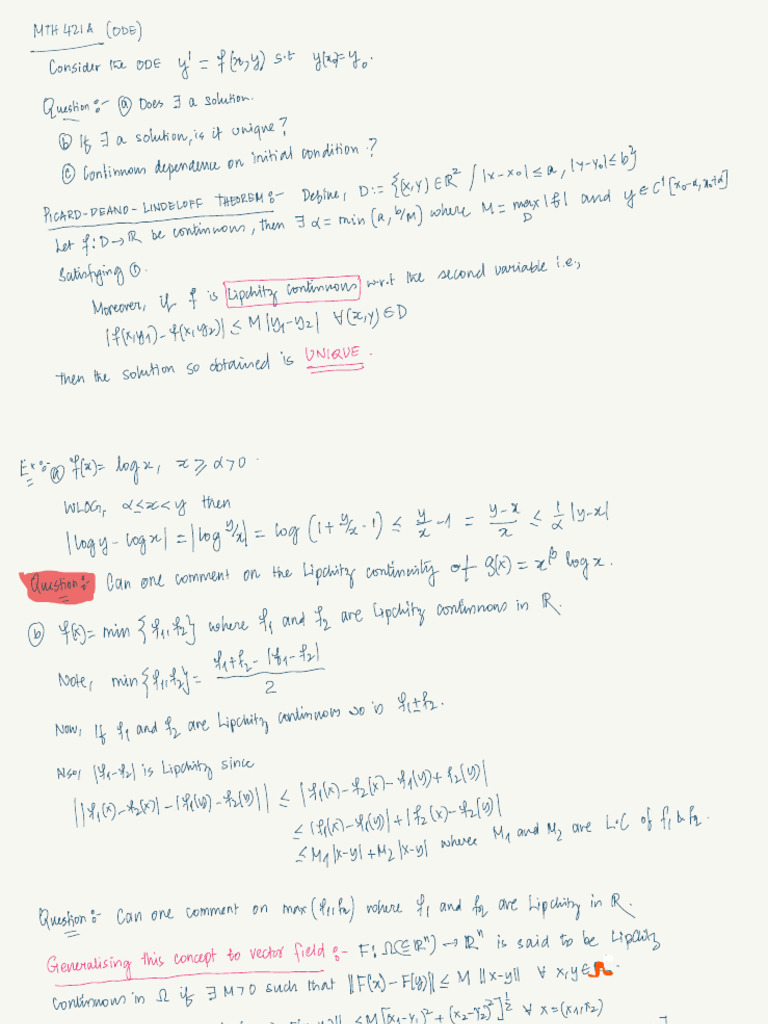 MTH 421A (ODE)
Consider the ODE y' = f(x,y) s.t y(x₀)=y₀.
Question:- ⓐ Does ∃ a solution.
ⓑ If ∃ a solution, is it unique?
ⓒ Continuous dependence on initial condition?
PICARD-DEANO-LINDELOFF THEOREM:- Define, D := {(x,y) ∈ ℝ² / |x-x₀| ≤ a, |y-y₀| ≤ b}
Let f: D→ℝ be continuous, then ∃ α = min (a, b/M) where M = max_D |f| and y ∈ C¹[x₀-α, x₀+α]
Satisfying ①.
Moreover, if f is Lipchitz continuous w.r.t the second variable i.e.,
|f(x,y₁) - f(x,y₂)| ≤ M |y₁-y₂| ∀(x,y) ∈ D
then the solution so obtained is UNIQUE.
Ex:- ⓐ f(x) = log x, x ≥ α > 0.
WLOG, α ≤ x < y then
|log y - log x| = |log y/x| = log (1 + y/x - 1) ≤ y/x - 1 = (y-x)/x ≤ 1/α |y-x|
Question:- Can one comment on the Lipchitz continuity of g(x) = x^β log x.
ⓑ f(x) = min {f₁, f₂} where f₁ and f₂ are Lipchitz continuous in ℝ.
Note, min {f₁, f₂} = (f₁+f₂ - |f₁-f₂|)/2
Now, If f₁ and f₂ are Lipchitz continuous so is f₁±f₂.
Also, |f₁-f₂| is Lipchitz since
||f₁(x)-f₂(x)| - |f₁(y)-f₂(y)|| ≤ |f₁(x)-f₂(x)-f₁(y)+f₂(y)|
≤ |f₁(x)-f₁(y)| + |f₂(x)-f₂(y)|
≤ M₁|x-y| + M₂|x-y| where M₁ and M₂ are L.C of f₁ & f₂.
Question:- Can one comment on max(f₁,f₂) where f₁ and f₂ are Lipchitz in ℝ.
Generalising this concept to vector field:- F: Ω(⊆ℝⁿ) → ℝⁿ is said to be Lipchitz
continuous in Ω if ∃ M>0 such that ||F(x)-F(y)|| ≤ M ||x-y|| ∀ x,y ∈ Ω.
≤ M[(x₁-y₁)² + (x₂-y₂)²]^½ ∀ x=(x₁,x₂)